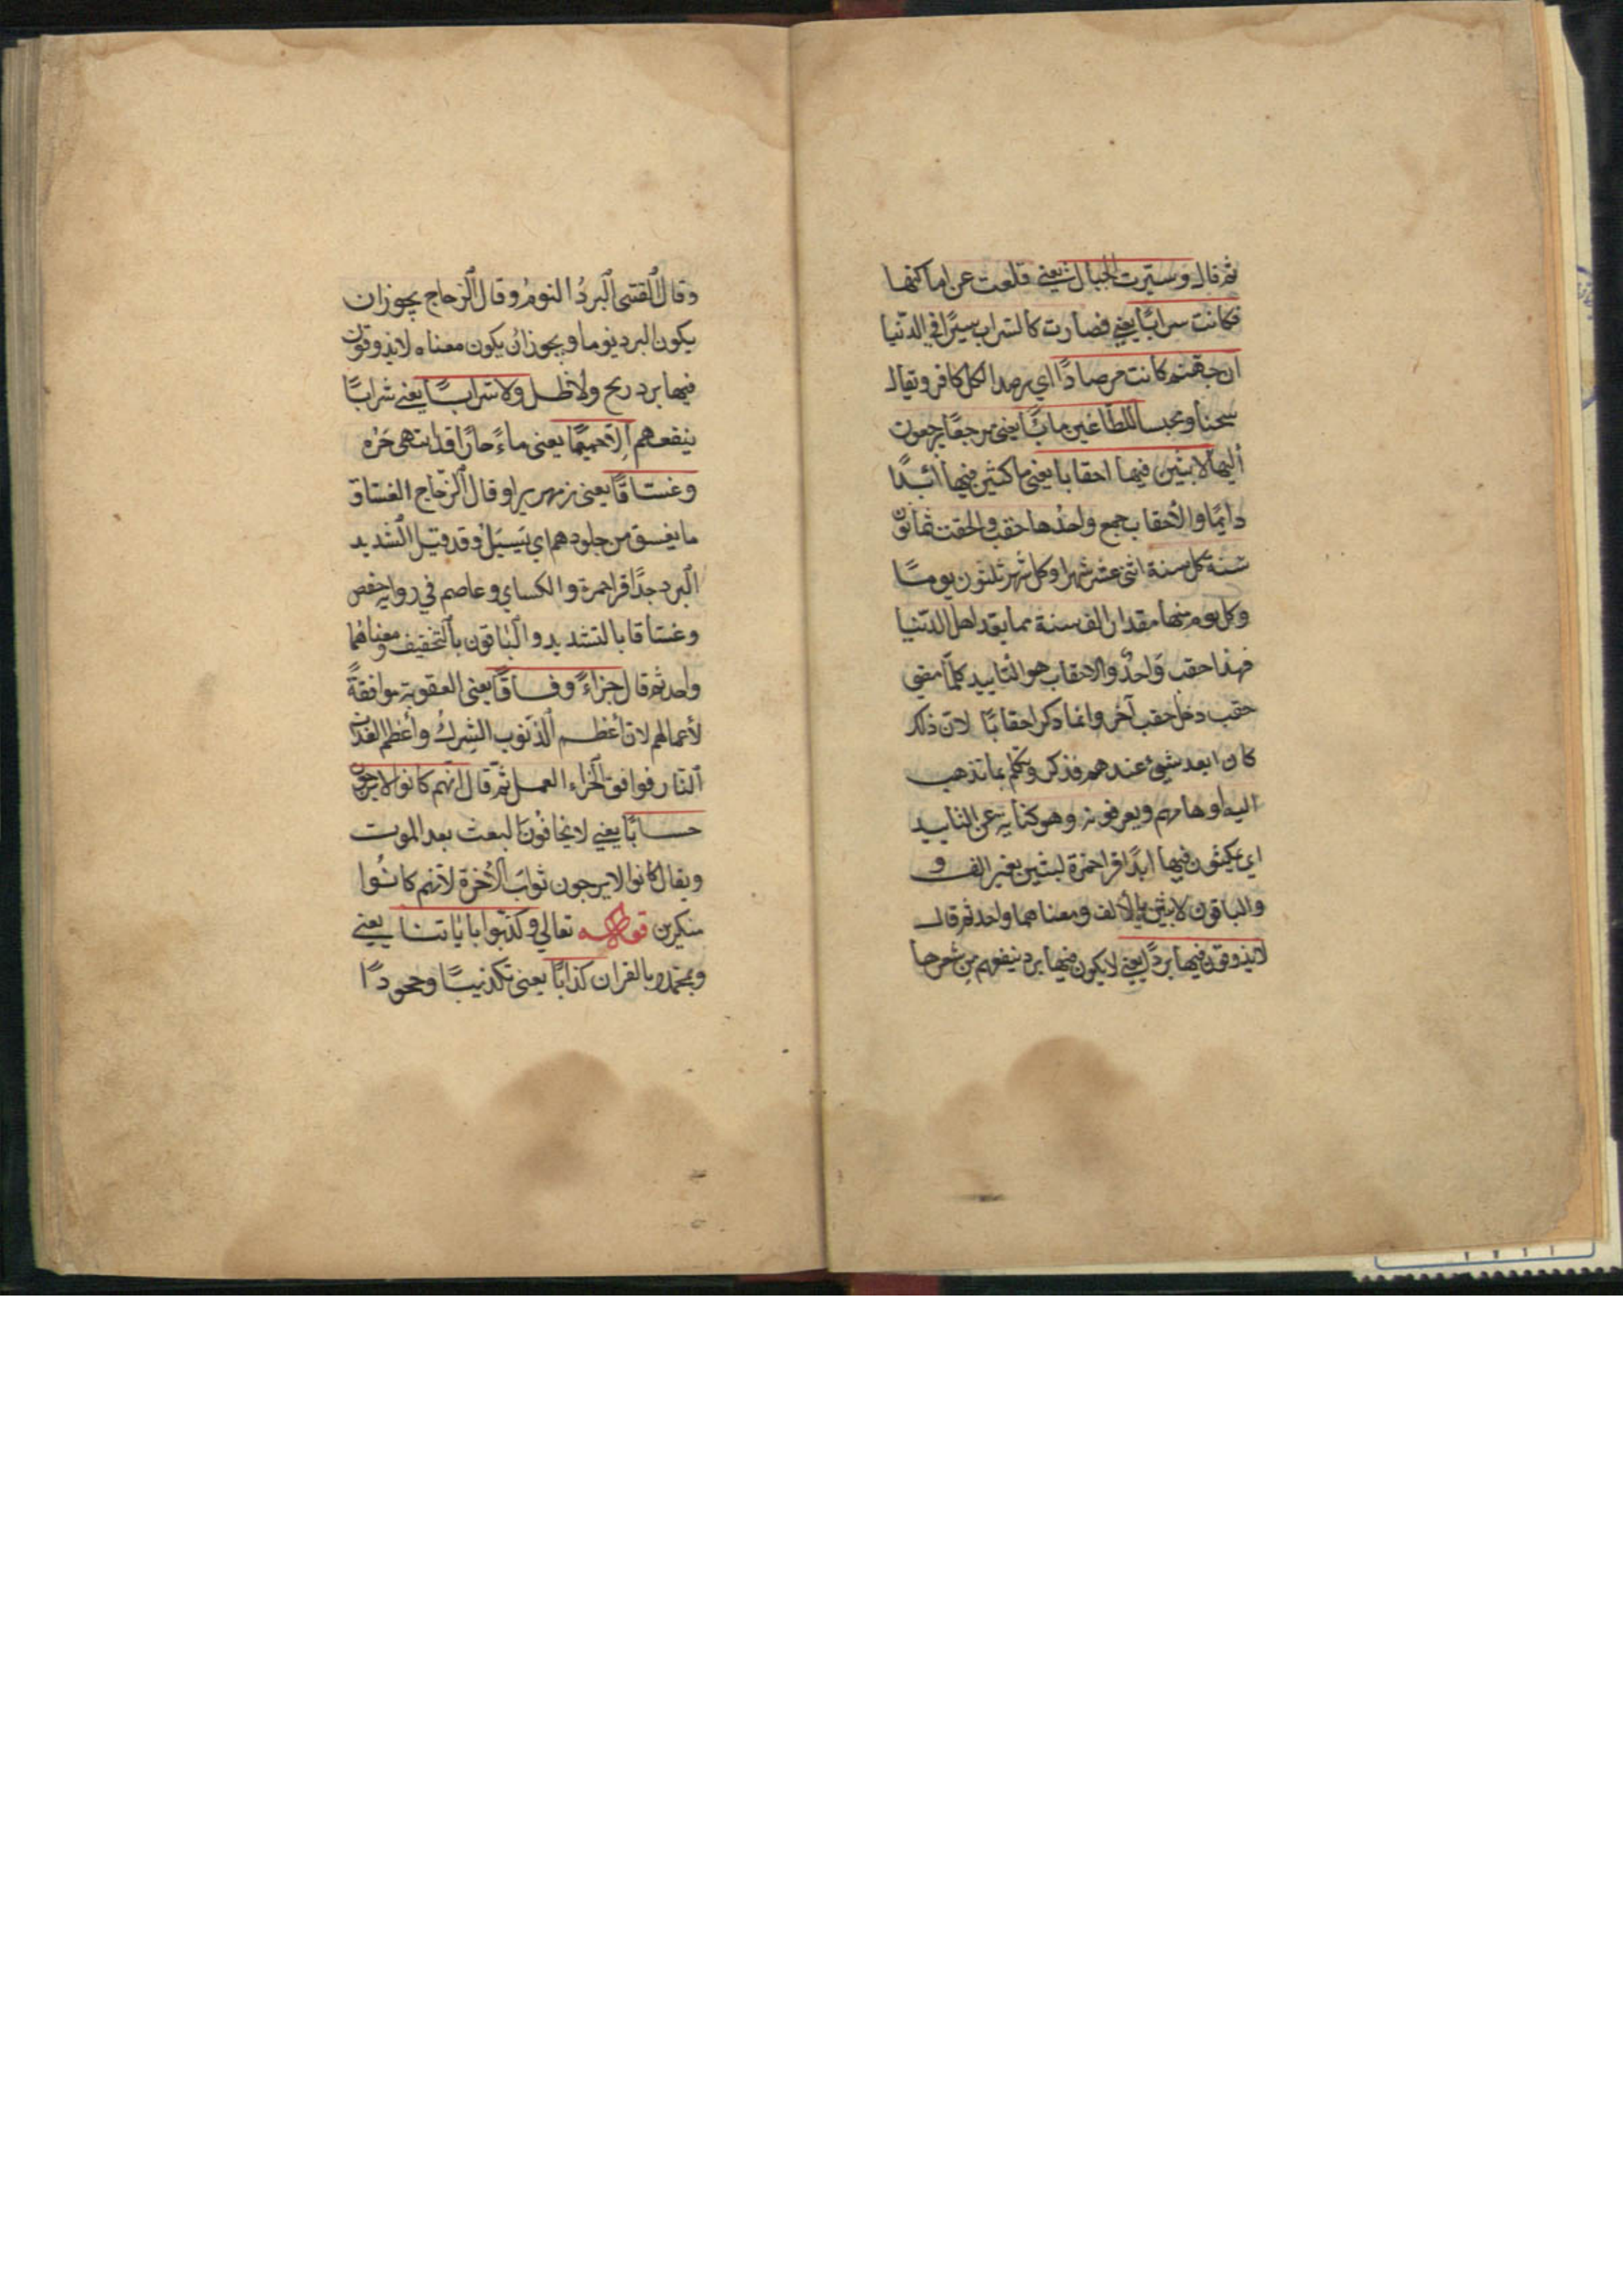 ثم قال وسيرت الجبال يعني قلعت عن اماكنها
فكانت سرابًا يعني فصارت كالسراب سيرًا في الدنيا
ان جهنم كانت مرصادًا اي رصدا لكل كافر ويقال
سجنا ومحبسا للطاغين مابًا يعني مرجعًا يرجعون
أليها لابثين فيها احقابا يعني ماكثين فيها ائبدًا
دايمًا والأحقاب جمع واحدها حقب والحقت ثمانون
سنة كل سنة اثنى عشر شهرا وكل شهر ثلثون يومًا
وكل يوم منها مقدار الف سنة مما يعد اهل الدنيا
فهذا حقب واحدٌ والاحقاب هو التاييد كلّما مضى
حقب دخل حقب آخر وانما ذكر احقابًا لان ذلك
كان ابعد شيئ عندهم فذكر وتكلم بما تذهب
اليه اوهامهم ويعرفونه وهو كناية عن التاييد
اي يمكثون فيها ابدًا قرا حمزة لبثين بغير الف و
والباقون لابثين بالألف ومعناهما واحد ثم قال
لايذوقون فيها بردًا يعني لايكون فيها برد ينفعهم من
وقال القتبى البردُ النومُ وقال الزجاج يجوز ان
يكون البرد نوما ويجوز ان يكون معناه لايذوقون
فيها برد ريح ولاظل ولا شرابًا يعني شرابًا
ينفعهم إلا حميمًا يعنى ماءً حارًا قد انتهى حَرُه
وغساقًا يعنى زمهريرا وقال الزجاج الغساق
ما يغسق من جلودهم اي يَسيلُ وقد قيل الشديد
البرد جدًا قرا حمزة والكساي وعاصم في رواية حفص
وغساقا بالتشديد والباقون بالتخفيف ومعناهُما
واحد ثم قال جزاءً وفاقًا يعنى العقوبة موافقةً
لأعمالهم لان أعظم الذنوب الشركُ وأعظم العذاب
النار فوافق الجزاء العمل ثمّ قال انّهم كانوا لايرجون
حسابًا يعني لايخافون البعث بعد الموت
ويقال كانوا لايرجون ثوابَ الأخرة لأنهم كانُوا
منكرين قوله تعالي وكذبّوا باياتنا يعني
وبمحمد بالقران كذابًا يعنى تكذيبًا وجحودًا